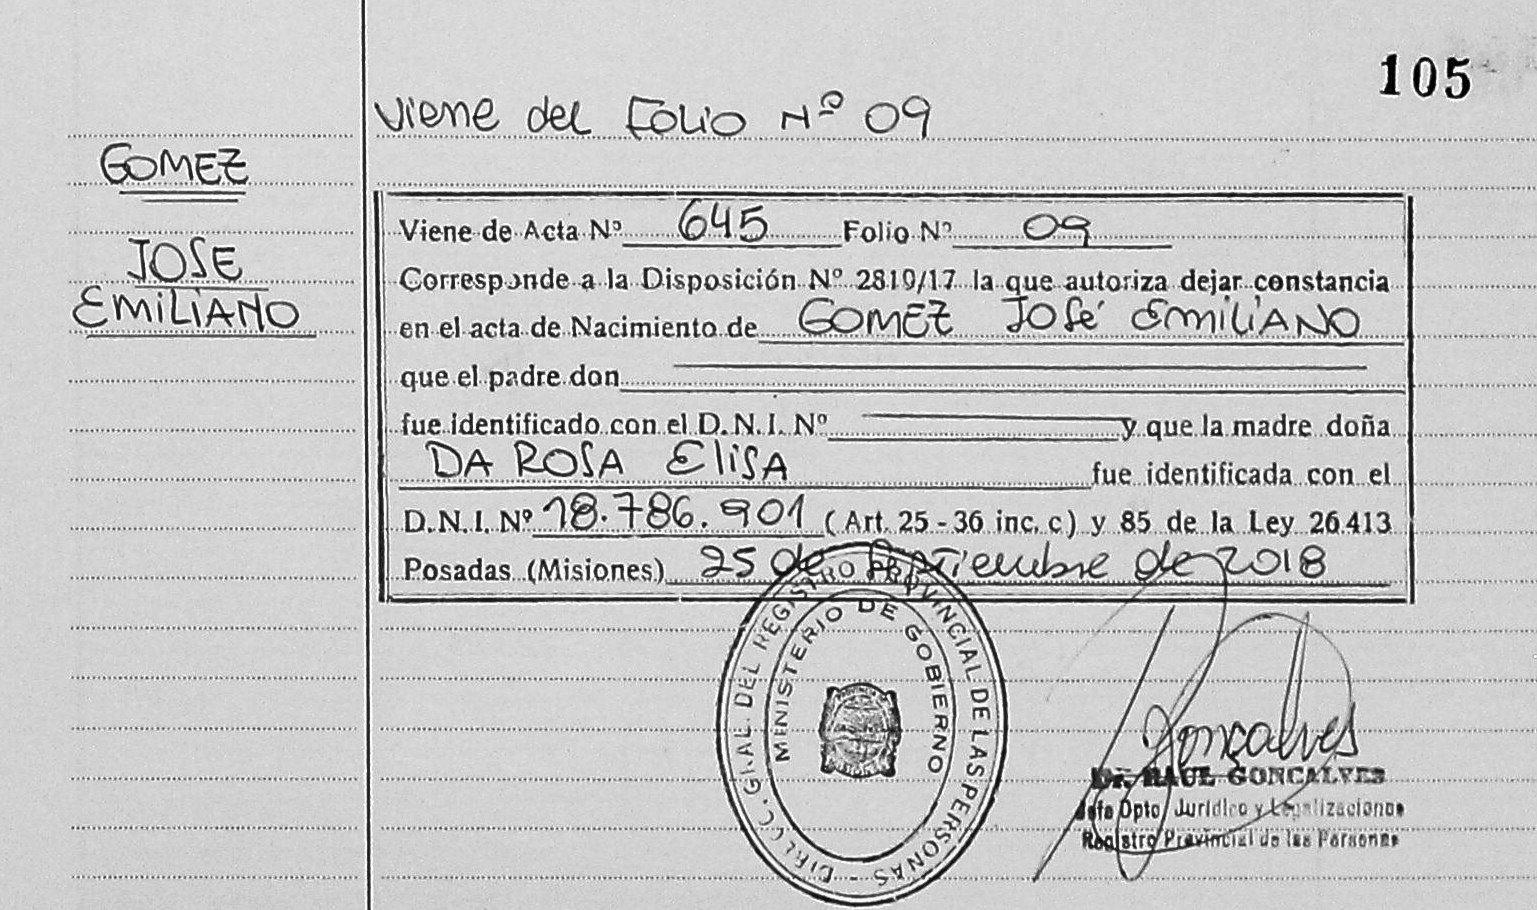 105
Viene del Folio Nº 09
GOMEZ
JOSE
EMILIANO
Viene de Acta Nº 645 Folio Nº 09
Corresponde a la Disposición Nº 2819/17 la que autoriza dejar constancia
en el acta de Nacimiento de GOMEZ JOSÉ EMILIANO
que el padre don
fue identificado con el D.N.I. Nº y que la madre doña
DA ROSA ELISA fue identificada con el
D.N.I. Nº 18.786.901 (Art. 25 - 36 inc. c) y 85 de la Ley 26.413
Posadas (Misiones) 25 de Septiembre de 2018
DIRECC. GRAL. DEL REGISTRO PROVINCIAL DE LAS PERSONAS
MINISTERIO DE GOBIERNO
Gonçalves
Dr. RAUL GONCALVES
Jefe Dpto Jurídico y Legalizaciones
Registro Provincial de las Personas